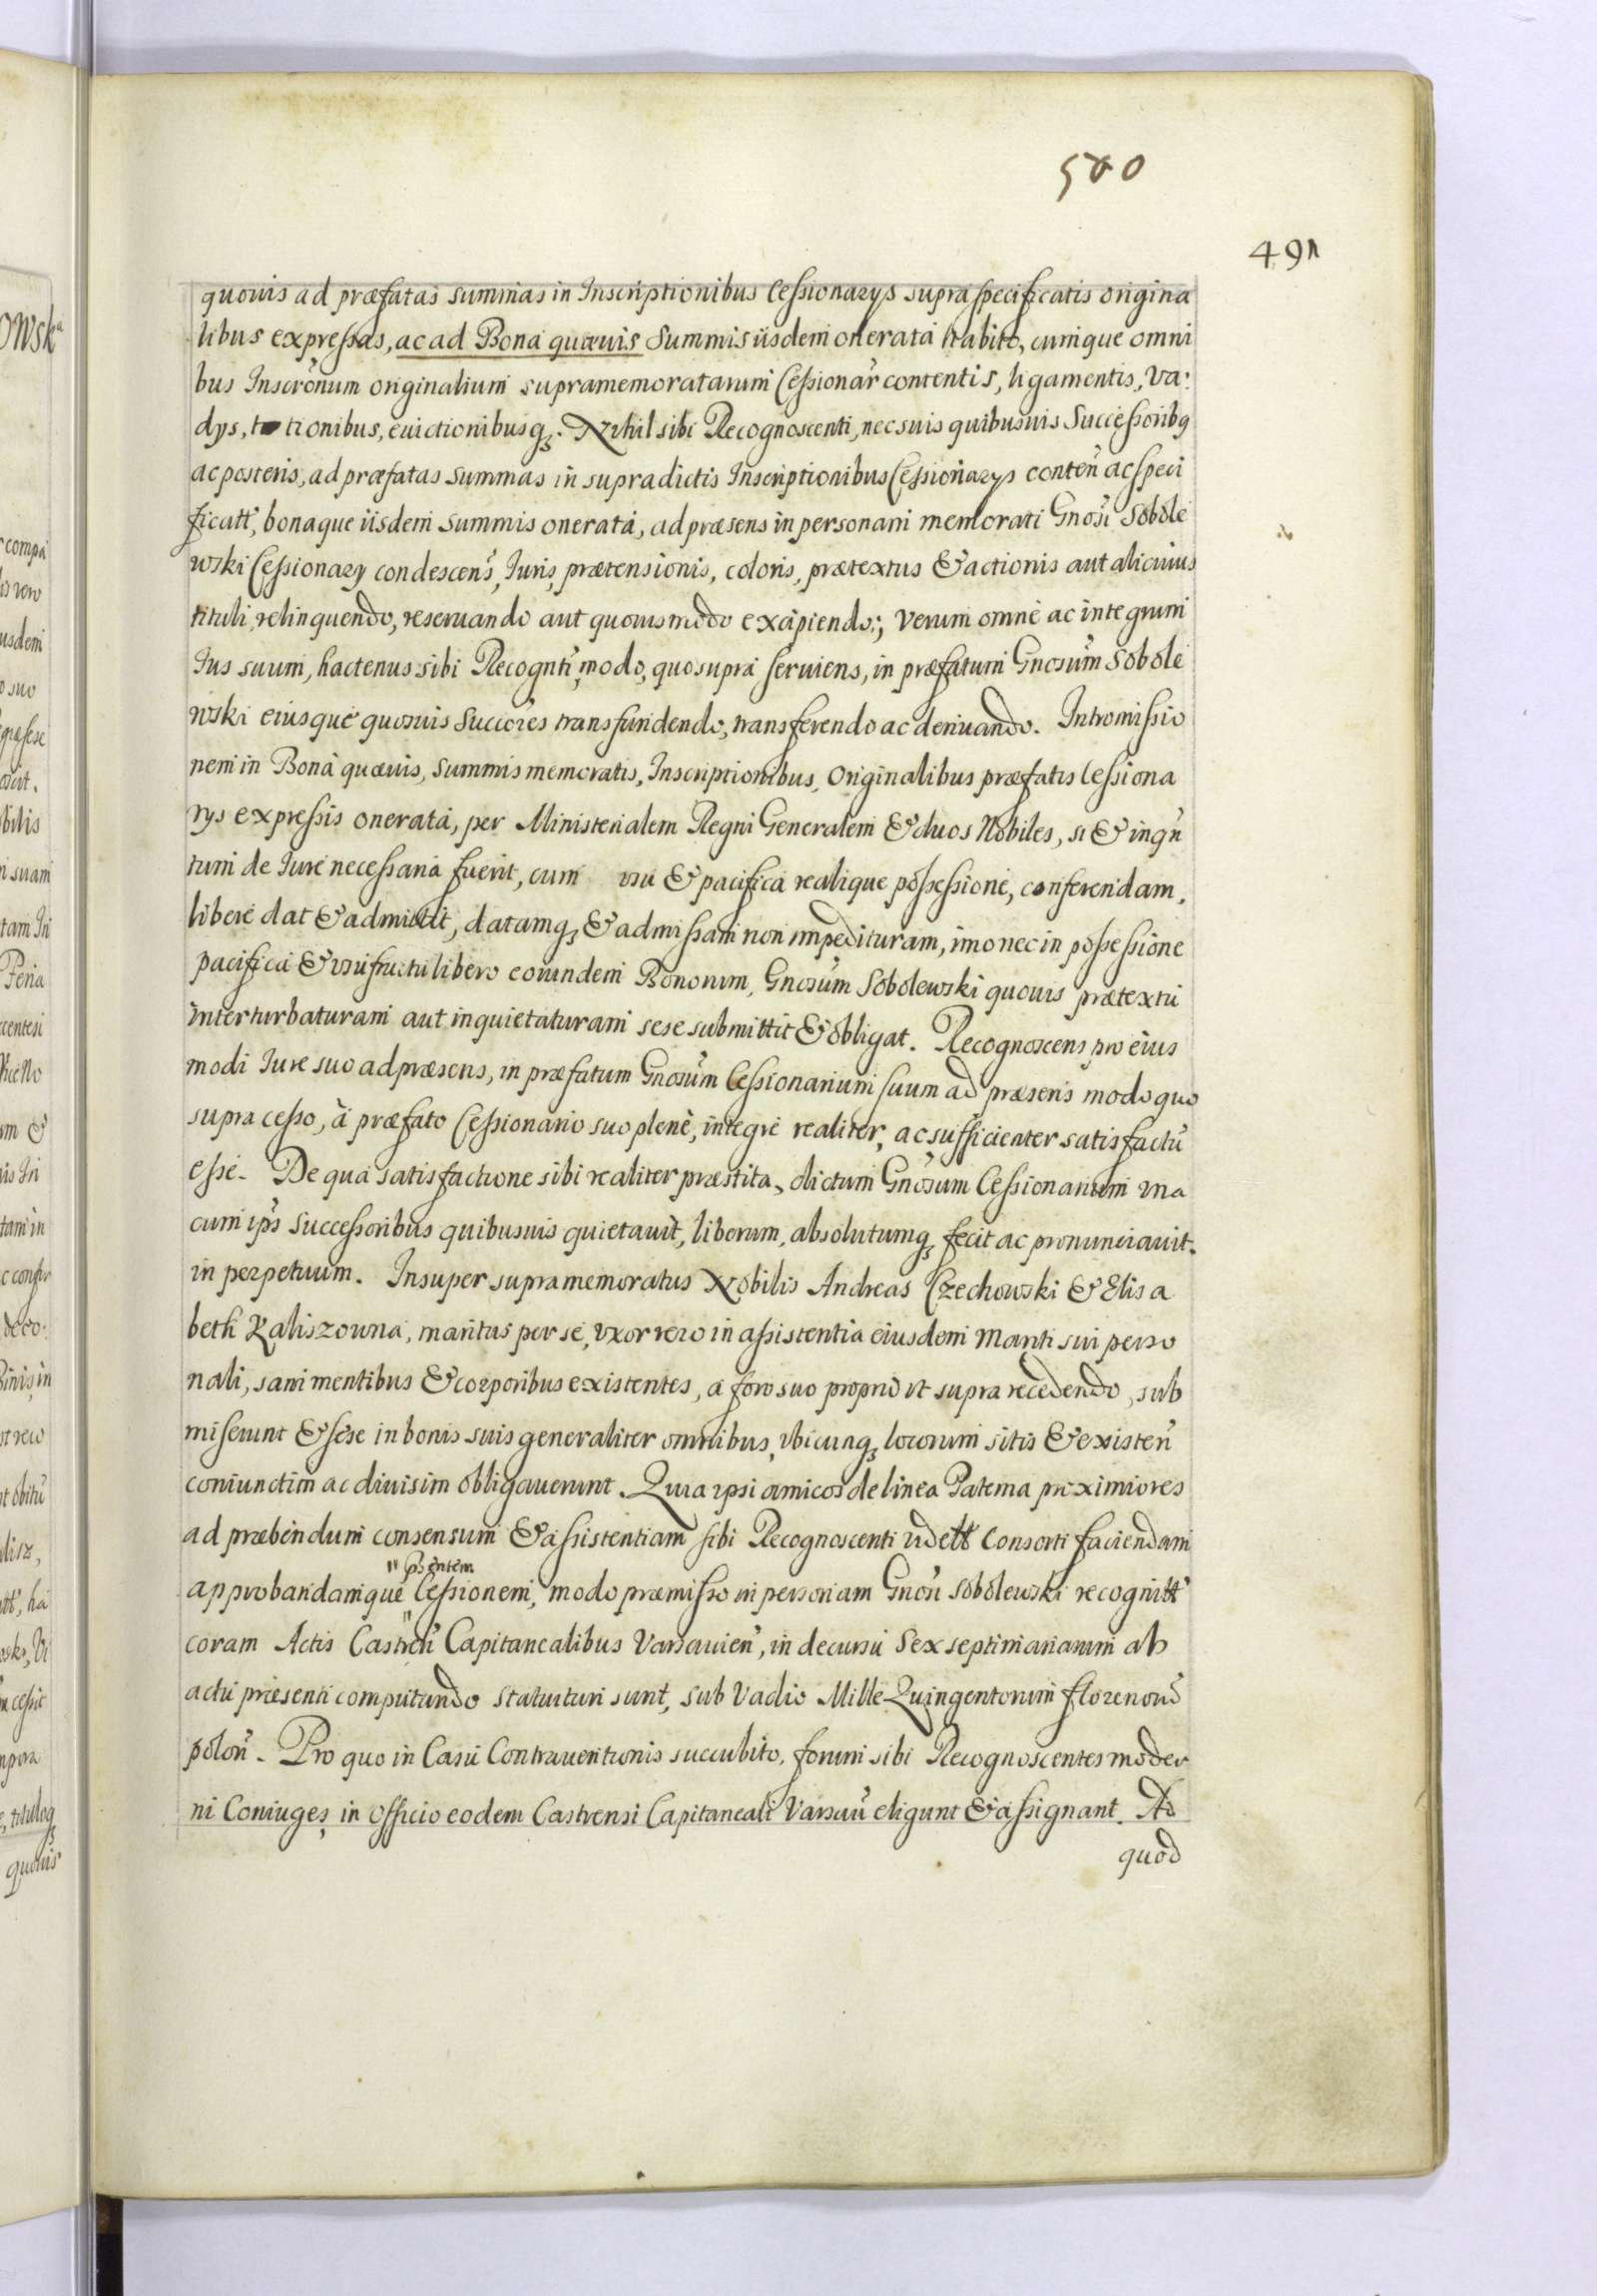 580
491
quouis ad præfatas summas in Inscriptionibus Cessionarys supra specificatis origina
libus expressas, ac ad Bona quæuis Summis iisdem onerata habito, cumque omni
bus Inscrōnum originalium supramemoratarum Cessionar̃ contentis, ligamentis, va:
dys, tionibus, euictionibusq̨. Nihil sibi Recognoscenti, nec suis quibusuis Successoribq
ac posteris, ad præfatas summas in supradictis Inscriptionibus Cessionarys conteñ ac speci
ficatt', bonaque iisdem summis onerata, ad præsens in personam memorati Gnosi Sobole
wski Cessionary condescens̃, Iuris, prætensionis, coloris, prætextus & actionis aut alicuius
tituli, relinquendo, reseruando aut quouismodo excipiendo; verum omne ac integrum
Ius suum, hactenus sibi Recogntĩ, modo, quo supra seruiens, in præfatum Gnosum̃ Sobole
wski eiusque quosuis Succores transfundendo, transferendo ac deriuando. Intromissio
nem in Bona quæuis, summis memoratis, Inscriptionibus, Originalibus præfatis Cessiona
rys expressis onerata, per Ministerialem Regni Generalem & duos Nobiles, si & inqñ
tum de Iure necessaria fuerit, cum usu & pacifica realique possessione, conferendam,
libere dat & admittit, datamq̨ & admissam non impedituram, imo nec in possessione
pacifica & vsufructu libero eorundem Bonorum, Gnosum̃ Sobolewski quouis prætextu
interturbaturam aut inquietaturam sese submittit & obligat. Recognoscens, pro eius
modi Iure suo ad præsens, in præfatum Gnosum̃ Cessionarium suum ad præsens modo quo
supra cesso, à præfato Cessionario suo plenè, integre realiter, ac sufficienter satisfactũ
esse. De qua satisfactione sibi realiter præstita, dictum Gnosum̃ Cessionarium vna
cum ip̃s successoribus quibusuis quietauit, liberum, absolutumq̨ fecit ac pronunciauit.
in perpetuum. Insuper supramemoratus Nobilis Andreas Czechowski & Elisa
beth Kaliszowna, maritus per se, vxor vero in assistentia eiusdem Mariti sui perso
nali, sani mentibus & corporibus existentes, a foro suo proprio vt supra recedendo, sub
miserunt & sese in bonis suis generaliter omnibus, vbicunq̨ locorum sitis & existeñ
coniunctim ac diuisim obligauerunt. Quia ipsi amicos de linea Paterna proximiores
ad præbendum consensum & assistentiam sibi Recognoscenti vdett Consorti faciendam
" pñtem
approbandamque "Cessionem, modo præmisso in personam Gnosi Sobolewski recognitt'
coram Actis Castreñ Capitanealibus Varsauieñ, in decursu Sex septimanarum ab
actu præsenti computando statuituri sunt, sub Vadio Mille Quingentorum florenorũ
poloñ. Pro quo in Casu Contrauentionis succubito, forum sibi Recognoscentes moder
ni Coniuges, in Officio eodem Castrensi Capitaneali Varsaũ eligunt & assignant. Ad
quod